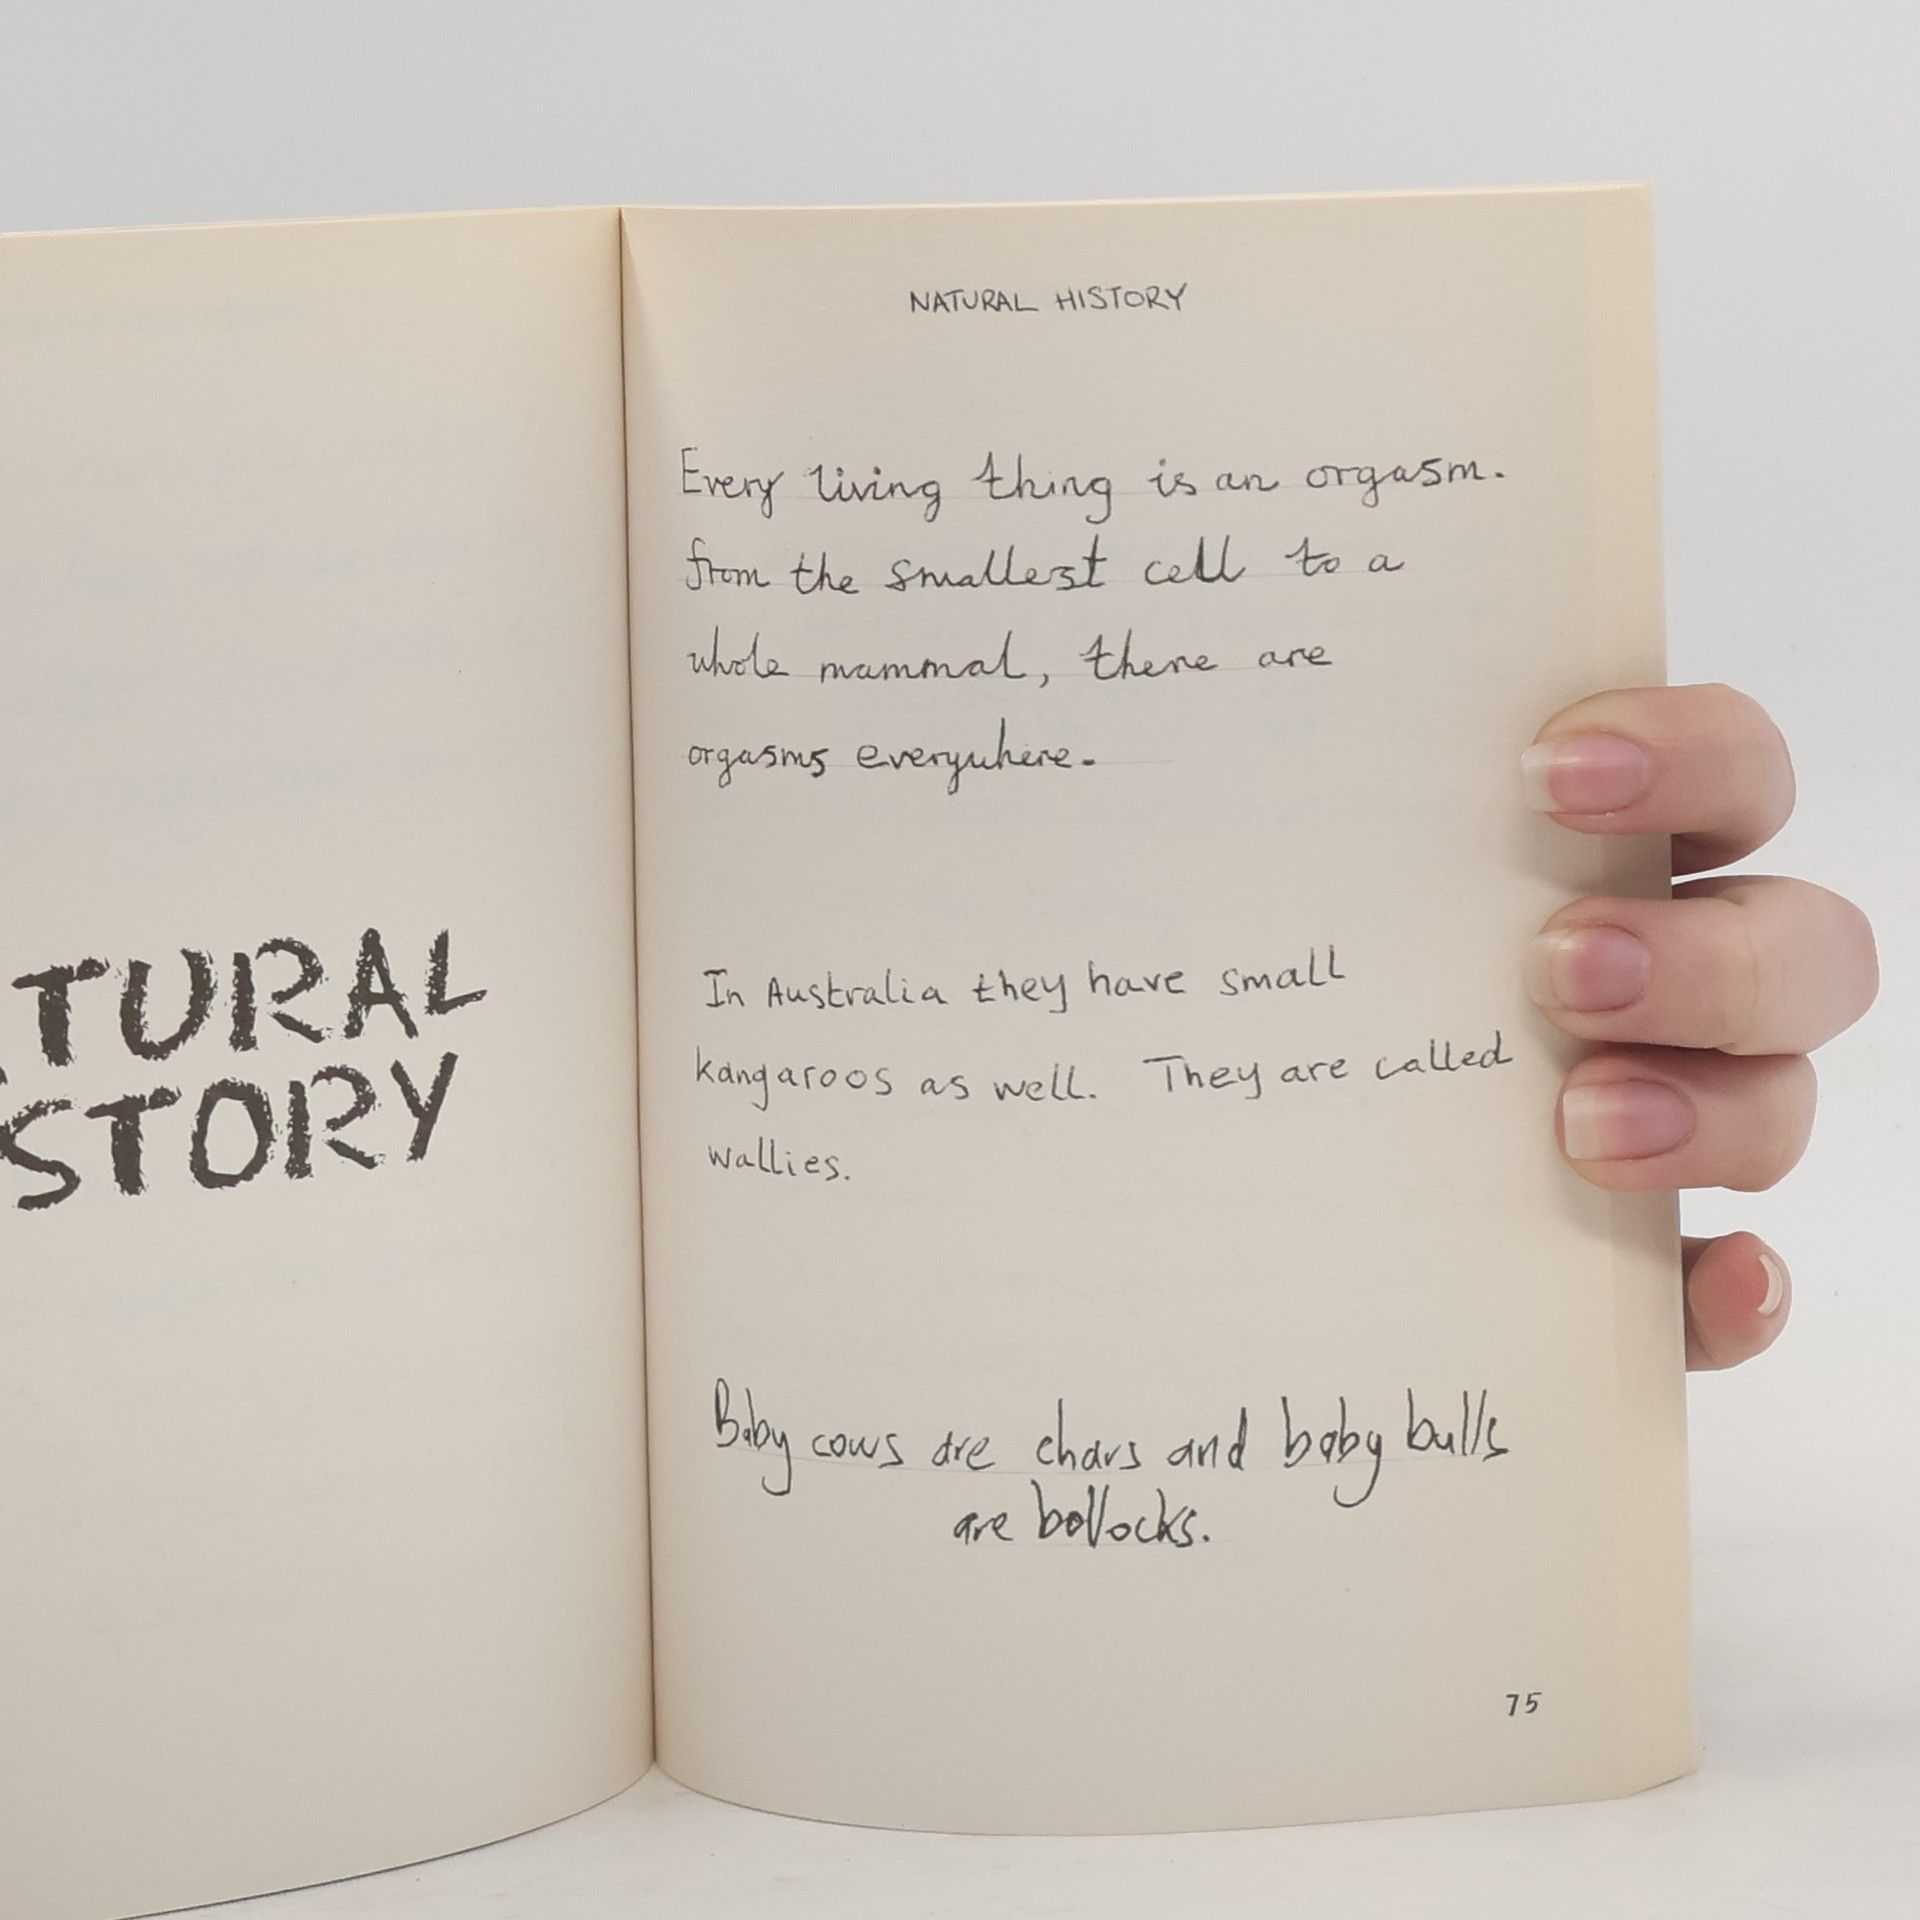 TURAL
STORY
NATURAL HISTORY
Every living thing is an orgasm.
from the smallest cell to a
whole mammal, there are
orgasms everywhere.
In Australia they have small
kangaroos as well. They are called
wallies.
Baby cows are chavs and baby bulls
are bollocks.
75